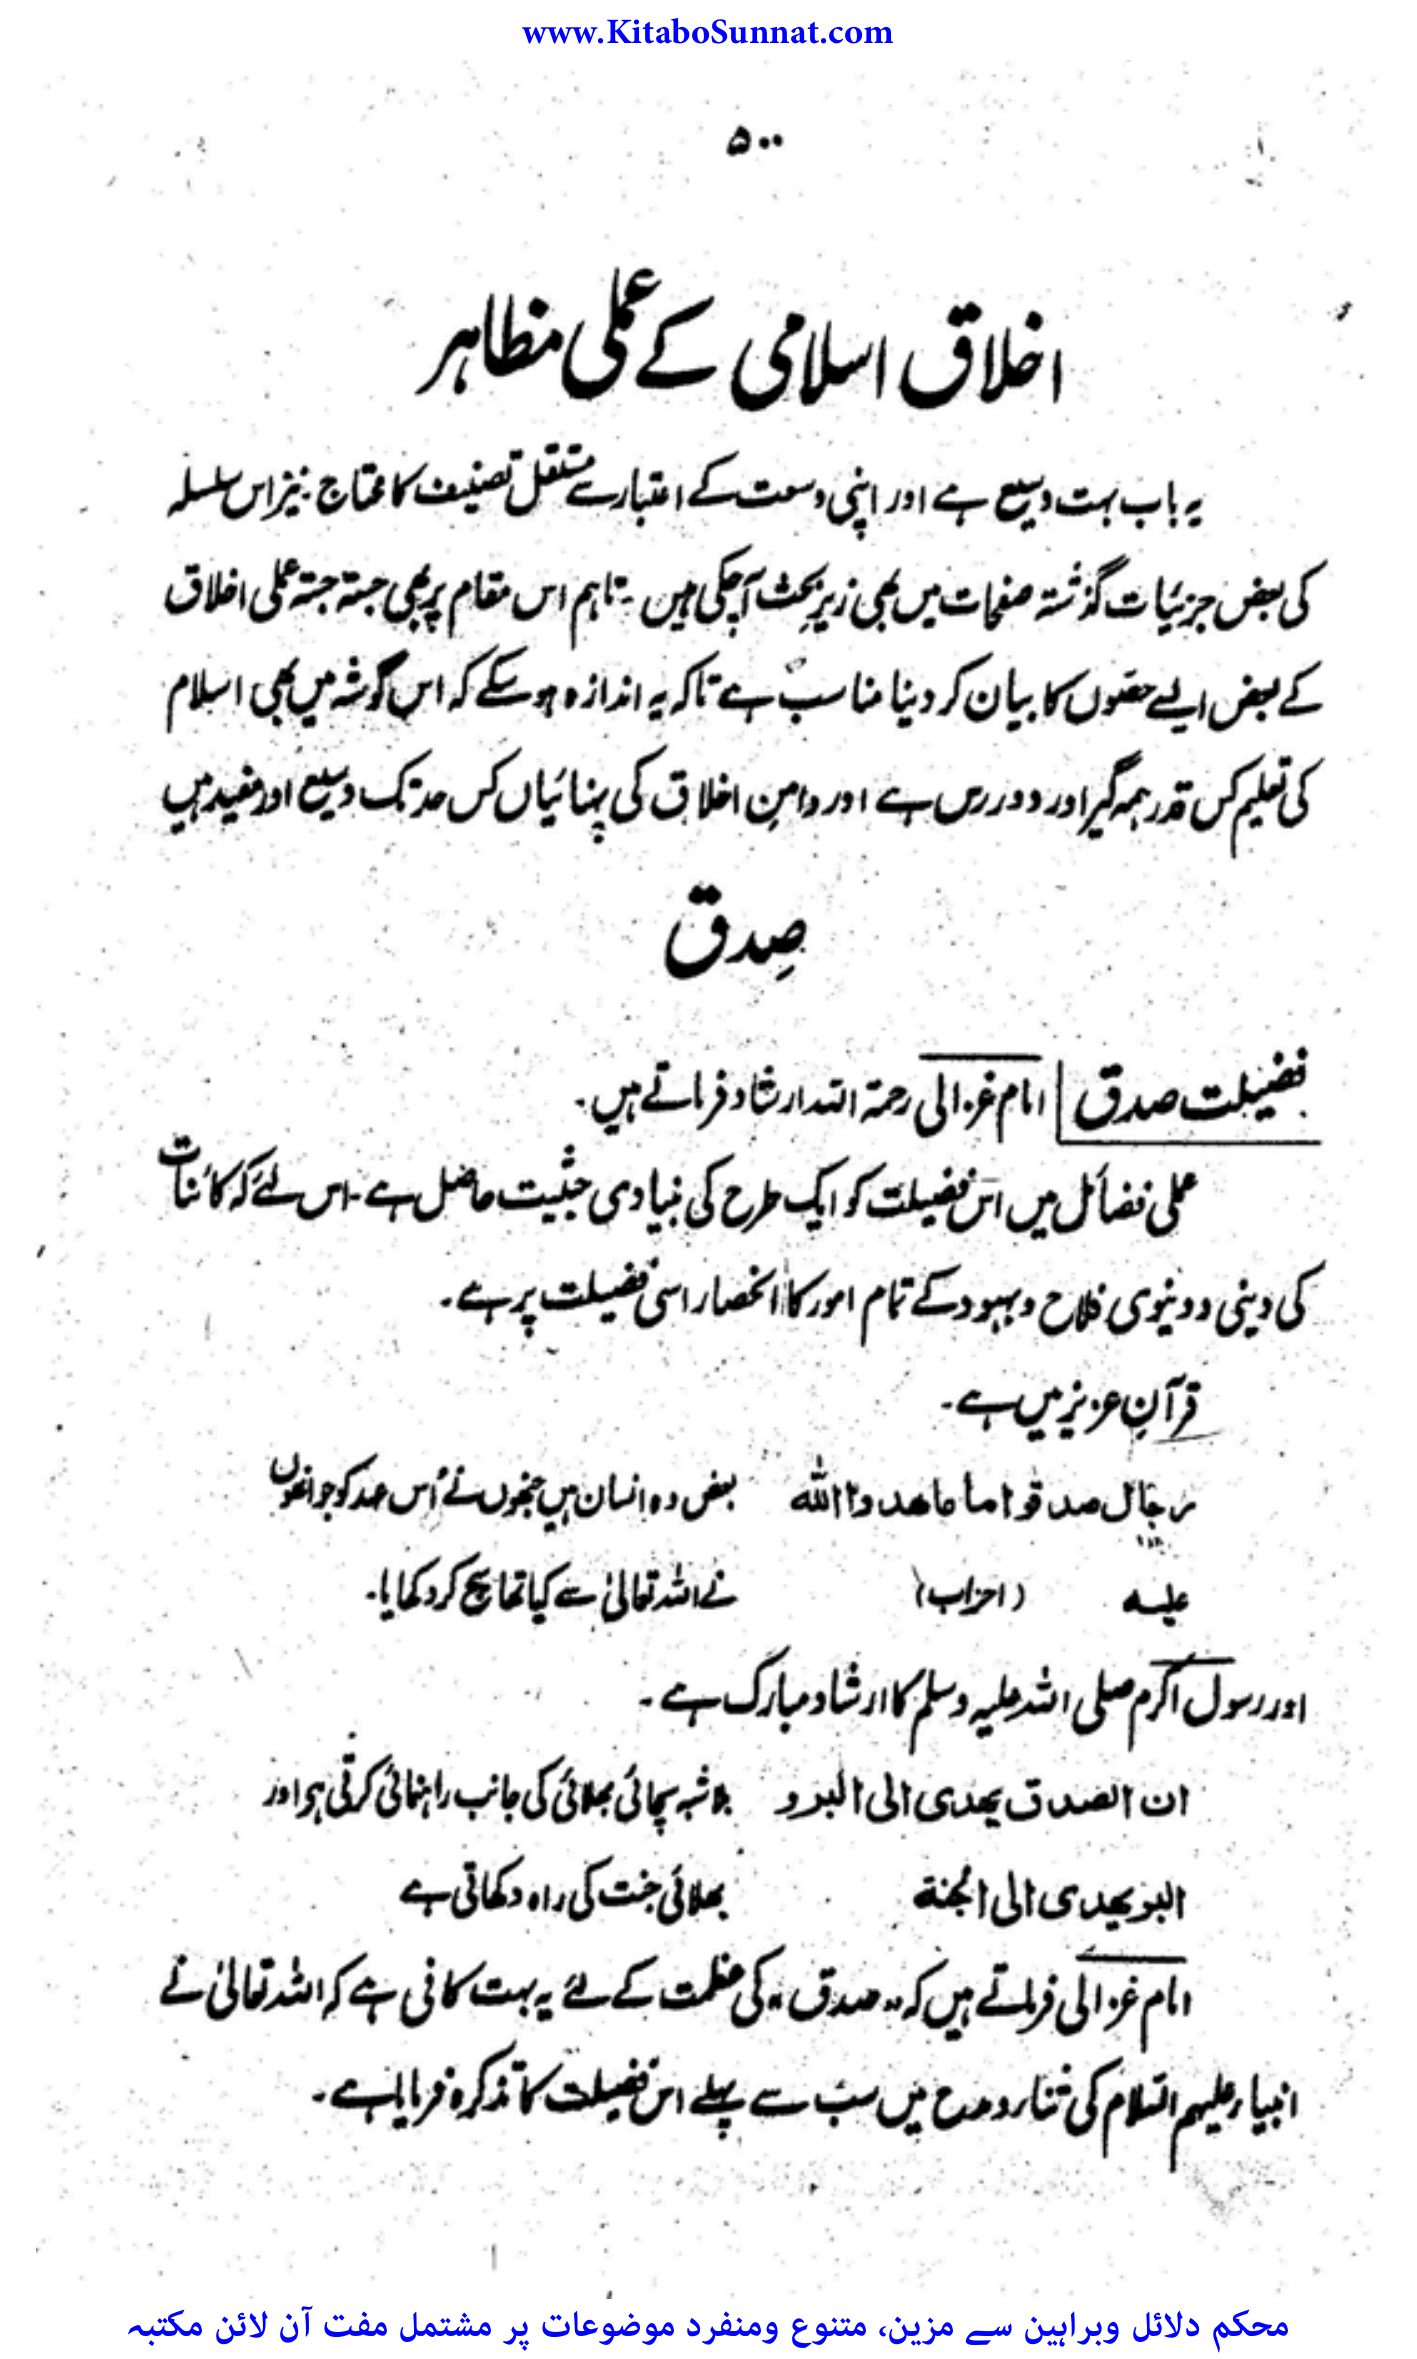 www.KitaboSunnat.com
۵۰۰
اخلاق اسلامی کے عملی مظاہر
یہ باب بہت وسیع ہے اور اپنی وسعت کے اعتبار سے مستقل تصنیف کا محتاج۔ نیز اس سلسلہ
کی بعض جزئیات گذشتہ صفحات میں بھی زیرِ بحث آچکی ہیں۔ تاہم اس مقام پر بھی جستہ جستہ عملی اخلاق
کے بعض ایسے حصّوں کا بیان کر دینا مناسب ہے تاکہ یہ اندازہ ہو سکے کہ اس گوشہ میں بھی اسلام
کی تعلیم کس قدر ہمہ گیر اور دور رس ہے اور دامنِ اخلاق کی پہنائیاں کس حد تک وسیع اور مفید ہیں
صِدق
فضیلت صدق | امام غزالی رحمۃ اللہ ارشاد فرماتے ہیں۔
عملی فضائل میں اس فضیلت کو ایک طرح کی بنیادی حیثیت حاصل ہے۔ اس لئے کہ کائنات
کی دینی و دنیوی فلاح و بہبود کے تمام امور کا انحصار اسی فضیلت پر ہے۔
قرآنِ عزیز میں ہے۔
رجال صدقوا ما عاهدوا الله بعض وہ انسان ہیں جنھوں نے اُس عہد کو جو انھوں
علیہ (احزاب) نے اللہ تعالیٰ سے کیا تھا سچ کر دکھایا۔
اور رسول اکرم صلی اللہ علیہ وسلم کا ارشاد مبارک ہے۔
ان الصدق یهدی الی البر و بلا شبہ سچائی بھلائی کی جانب راہنمائی کرتی ہو اور
البر یهدی الی الجنة بھلائی جنت کی راہ دکھاتی ہے
امام غزالی فرماتے ہیں کہ "صدق" کی عظمت کے لئے یہ بہت کافی ہے کہ اللہ تعالیٰ نے
انبیاء علیہم السّلام کی ثناء و مدح میں سب سے پہلے اس فضیلت کا تذکرہ فرمایا ہے۔
محکم دلائل وبراہین سے مزین، متنوع ومنفرد موضوعات پر مشتمل مفت آن لائن مکتبہ